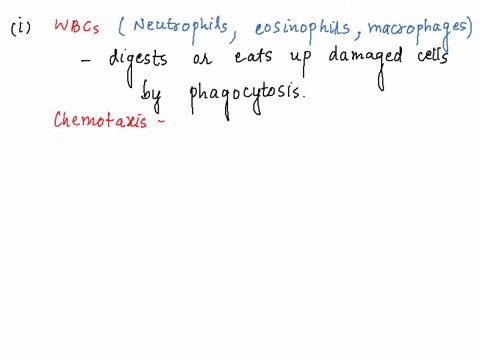 (i) WBCs (Neutrophils, eosinophils, macrophages)
- digests or eats up damaged cells
by phagocytosis.
Chemotaxis -